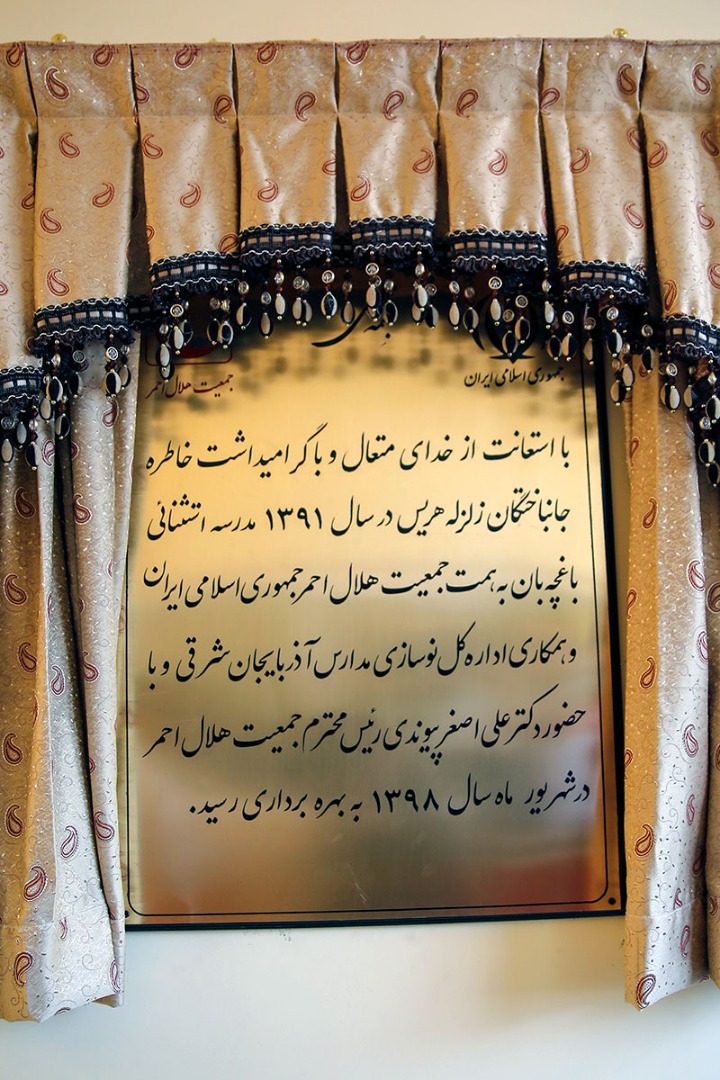 جمهوری اسلامی ایران
جمعیت هلال احمر
با استعانت از خدای متعال و با گرامیداشت خاطره
جانباختگان زلزله هریس در سال ۱۳۹۱ مدرسه استثنائی
باغچه بان به همت جمعیت هلال احمر جمهوری اسلامی ایران
و همکاری اداره کل نوسازی مدارس آذربایجان شرقی و با
حضور دکتر علی اصغر پیوندی رئیس محترم جمعیت هلال احمر
در شهریور ماه سال ۱۳۹۸ به بهره برداری رسید.